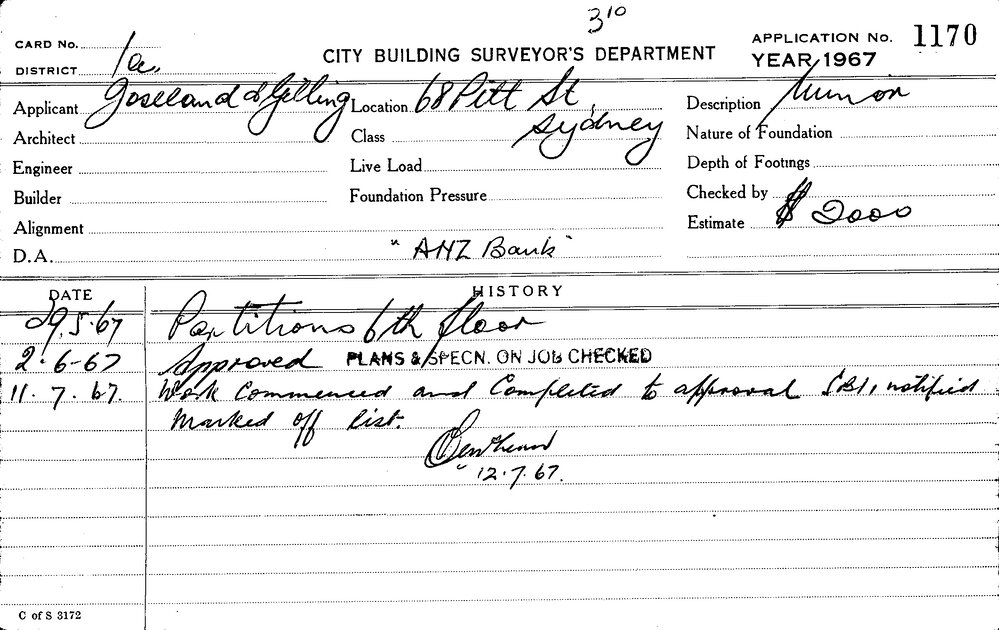 3¹⁰
CARD No. 1a.
DISTRICT
CITY BUILDING SURVEYOR'S DEPARTMENT
APPLICATION No. 1170
YEAR 1967
Applicant Joseland & Gilling Location 68 Pitt St, Description Minor
Architect Class Sydney Nature of Foundation
Engineer Live Load Depth of Footings
Builder Foundation Pressure Checked by
Alignment Estimate $ 2000
D.A. "ANZ Bank"
DATE HISTORY
29.5.67 Partitions 6th floor
2.6-67 Approved PLANS & SPECN. ON JOB CHECKED
11.7.67. Work Commenced and Completed to approval notified
marked off list.
12.7.67.
C of S 3172